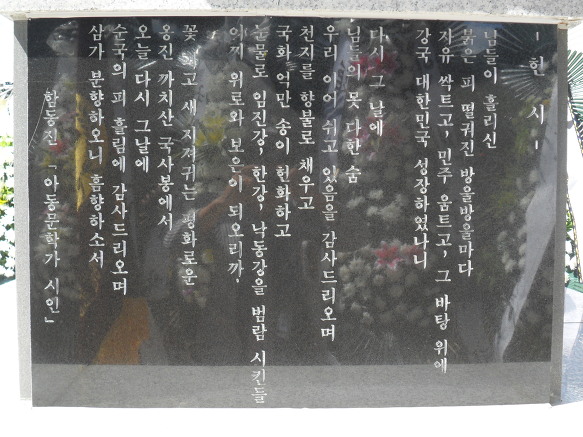 - 헌 시 -
님들이 흘리신
붉은 피 떨궈진 방울방울마다
자유 싹트고, 민주 움트고, 그 바탕 위에
강국 대한민국 성장하였나니
다시 그 날에
님들의 못 다한 숨
우리 이어 쉬고 있음을 감사드리오며
천지를 향불로 채우고
국화 억만 송이 헌화하고
눈물로 임진강, 한강, 낙동강을 범람 시킨들
이끼 위로와 보은이 되오리까,
꽃 피고 새 지져귀는 평화로운
옹진 까치산 국사봉에서
오늘 다시 그날에
순국의 피 흘림에 감사드리오며
삼가 분향하오니 흠향하소서
함동진 「아동문학가 시인」